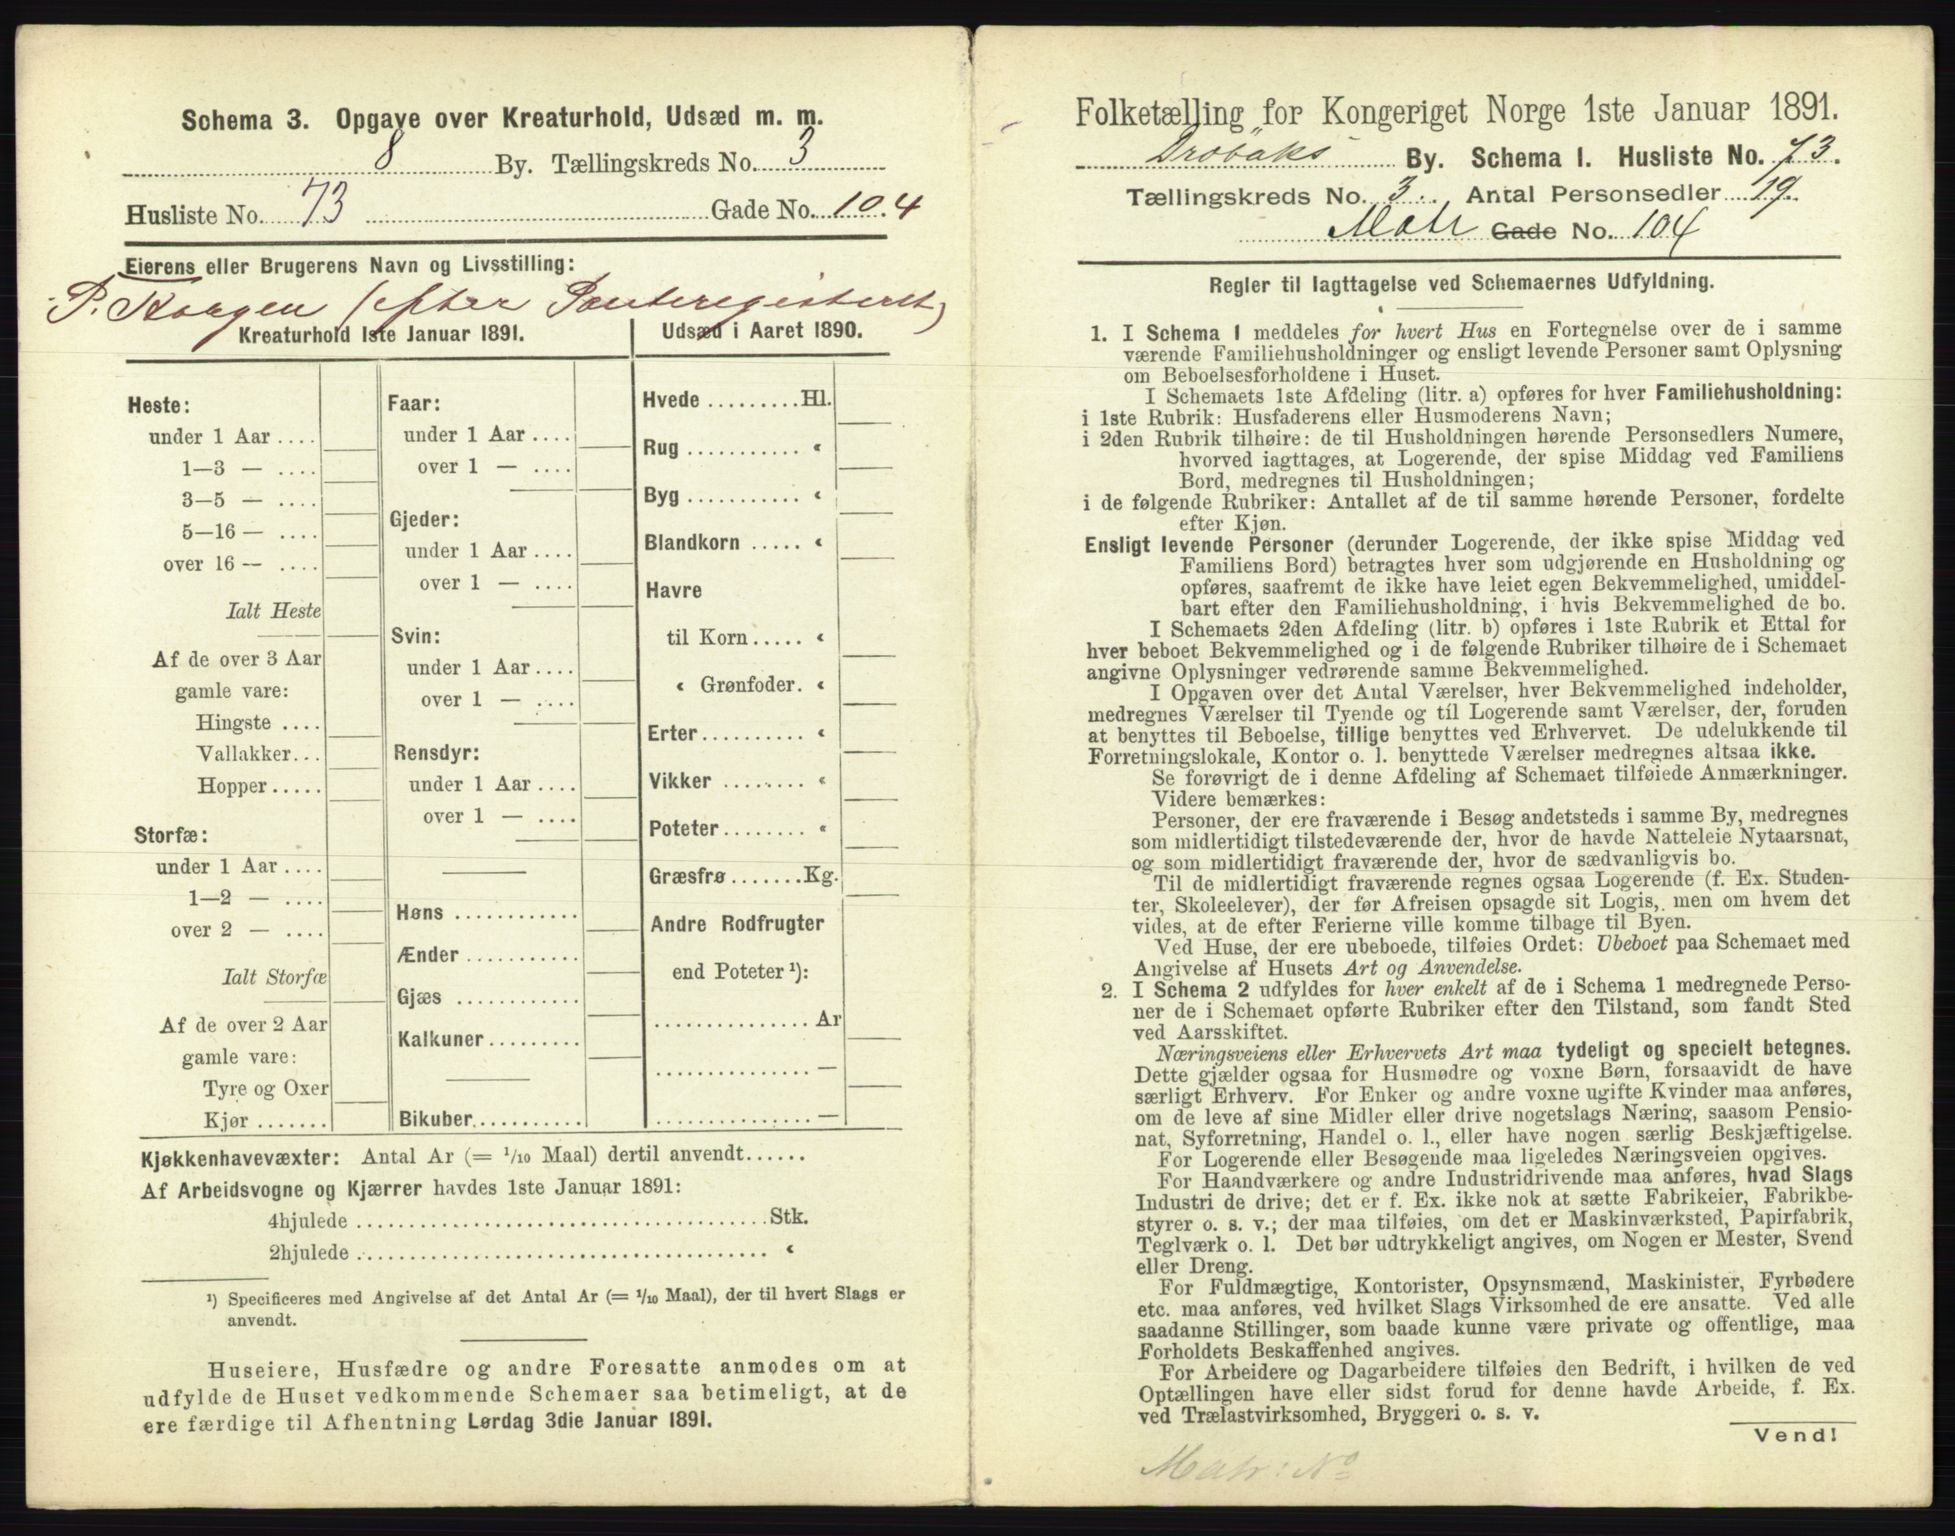 Schema 3. Opgave over Kreaturhold, Udsæd m. m.
8 By. Tællingskreds No. 3
Husliste No. 73 Gade No. 104
Eierens eller Brugerens Navn og Livsstilling:
P. Korgen (efter Panteregisteret)
Kreaturhold 1ste Januar 1891.
Heste:
under 1 Aar ....
1—3 — ....
3—5 — ....
5—16 — ....
over 16 — ....
Ialt Heste
Af de over 3 Aar
gamle vare:
Hingste ....
Vallakker...
Hopper.....
Storfæ:
under 1 Aar ....
1—2 — ....
over 2 — ....
Ialt Storfæ
Af de over 2 Aar
gamle vare:
Tyre og Oxer
Kjør .......
Faar:
under 1 Aar ....
over 1 — ....
Gjeder:
under 1 Aar ....
over 1 — ....
Svin:
under 1 Aar ....
over 1 — ....
Rensdyr:
under 1 Aar ....
over 1 — ....
Høns ...........
Ænder ...........
Gjæs ...........
Kalkuner.........
Bikuber..........
Udsæd i Aaret 1890.
Hvede .........Hl.
Rug ........... «
Byg ........... «
Blandkorn ..... «
Havre
til Korn ..... «
« Grønfoder. «
Erter.......... «
Vikker ........ «
Poteter........ «
Græsfrø.......Kg.
Andre Rodfrugter
end Poteter ¹):
...............Ar
............... —
............... —
Kjøkkenhavevæxter: Antal Ar (= 1/10 Maal) dertil anvendt......
Af Arbeidsvogne og Kjærrer havdes 1ste Januar 1891:
4hjulede ......................................Stk.
2hjulede ...................................... «
¹) Specificeres med Angivelse af det Antal Ar (= 1/10 Maal), der til hvert Slags er
anvendt.
Huseiere, Husfædre og andre Foresatte anmodes om at
udfylde de Huset vedkommende Schemaer saa betimeligt, at de
ere færdige til Afhentning Lørdag 3die Januar 1891.
Folketælling for Kongeriget Norge 1ste Januar 1891.
Drøbaks By. Schema 1. Husliste No. 73.
Tællingskreds No. 3. Antal Personsedler 19.
Matr Gade No. 104
Regler til Iagttagelse ved Schemaernes Udfyldning.
1. I Schema 1 meddeles for hvert Hus en Fortegnelse over de i samme
værende Familiehusholdninger og ensligt levende Personer samt Oplysning
om Beboelsesforholdene i Huset.
I Schemaets 1ste Afdeling (litr. a) opføres for hver Familiehusholdning:
i 1ste Rubrik: Husfaderens eller Husmoderens Navn;
i 2den Rubrik tilhøire: de til Husholdningen hørende Personsedlers Numere,
hvorved iagttages, at Logerende, der spise Middag ved Familiens
Bord, medregnes til Husholdningen;
i de følgende Rubriker: Antallet af de til samme hørende Personer, fordelte
efter Kjøn.
Ensligt levende Personer (derunder Logerende, der ikke spise Middag ved
Familiens Bord) betragtes hver som udgjørende en Husholdning og
opføres, saafremt de ikke have leiet egen Bekvemmelighed, umiddel-
bart efter den Familiehusholdning, i hvis Bekvemmelighed de bo.
I Schemaets 2den Afdeling (litr. b) opføres i 1ste Rubrik et Ettal for
hver beboet Bekvemmelighed og i de følgende Rubriker tilhøire de i Schemaet
angivne Oplysninger vedrørende samme Bekvemmelighed.
I Opgaven over det Antal Værelser, hver Bekvemmelighed indeholder,
medregnes Værelser til Tyende og til Logerende samt Værelser, der, foruden
at benyttes til Beboelse, tillige benyttes ved Erhvervet. De udelukkende til
Forretningslokale, Kontor o. l. benyttede Værelser medregnes altsaa ikke.
Se forøvrigt de i denne Afdeling af Schemaet tilføiede Anmærkninger.
Videre bemærkes:
Personer, der ere fraværende i Besøg andetsteds i samme By, medregnes
som midlertidigt tilstedeværende der, hvor de havde Natteleie Nytaarsnat,
og som midlertidigt fraværende der, hvor de sædvanligvis bo.
Til de midlertidigt fraværende regnes ogsaa Logerende (f. Ex. Studen-
ter, Skoleelever), der før Afreisen opsagde sit Logis, men om hvem det
vides, at de efter Ferierne ville komme tilbage til Byen.
Ved Huse, der ere ubeboede, tilføies Ordet: Ubeboet paa Schemaet med
Angivelse af Husets Art og Anvendelse.
2. I Schema 2 udfyldes for hver enkelt af de i Schema 1 medregnede Perso-
ner de i Schemaet opførte Rubriker efter den Tilstand, som fandt Sted
ved Aarsskiftet.
Næringsveiens eller Erhvervets Art maa tydeligt og specielt betegnes.
Dette gjælder ogsaa for Husmødre og voxne Børn, forsaavidt de have
særligt Erhverv. For Enker og andre voxne ugifte Kvinder maa anføres,
om de leve af sine Midler eller drive nogetslags Næring, saasom Pensio-
nat, Syforretning, Handel o. l., eller have nogen særlig Beskjæftigelse.
For Logerende eller Besøgende maa ligeledes Næringsveien opgives.
For Haandværkere og andre Industridrivende maa anføres, hvad Slags
Industri de drive; det er f. Ex. ikke nok at sætte Fabrikeier, Fabrikbe-
styrer o. s. v.; der maa tilføies, om det er Maskinværksted, Papirfabrik,
Teglværk o. l. Det bør udtrykkeligt angives, om Nogen er Mester, Svend
eller Dreng.
For Fuldmægtige, Kontorister, Opsynsmænd, Maskinister, Fyrbødere
etc. maa anføres, ved hvilket Slags Virksomhed de ere ansatte. Ved alle
saadanne Stillinger, som baade kunne være private og offentlige, maa
Forholdets Beskaffenhed angives.
For Arbeidere og Dagarbeidere tilføies den Bedrift, i hvilken de ved
Optællingen have eller sidst forud for denne havde Arbeide, f. Ex.
ved Trælastvirksomhed, Bryggeri o. s. v.
Vend!
Matr: No